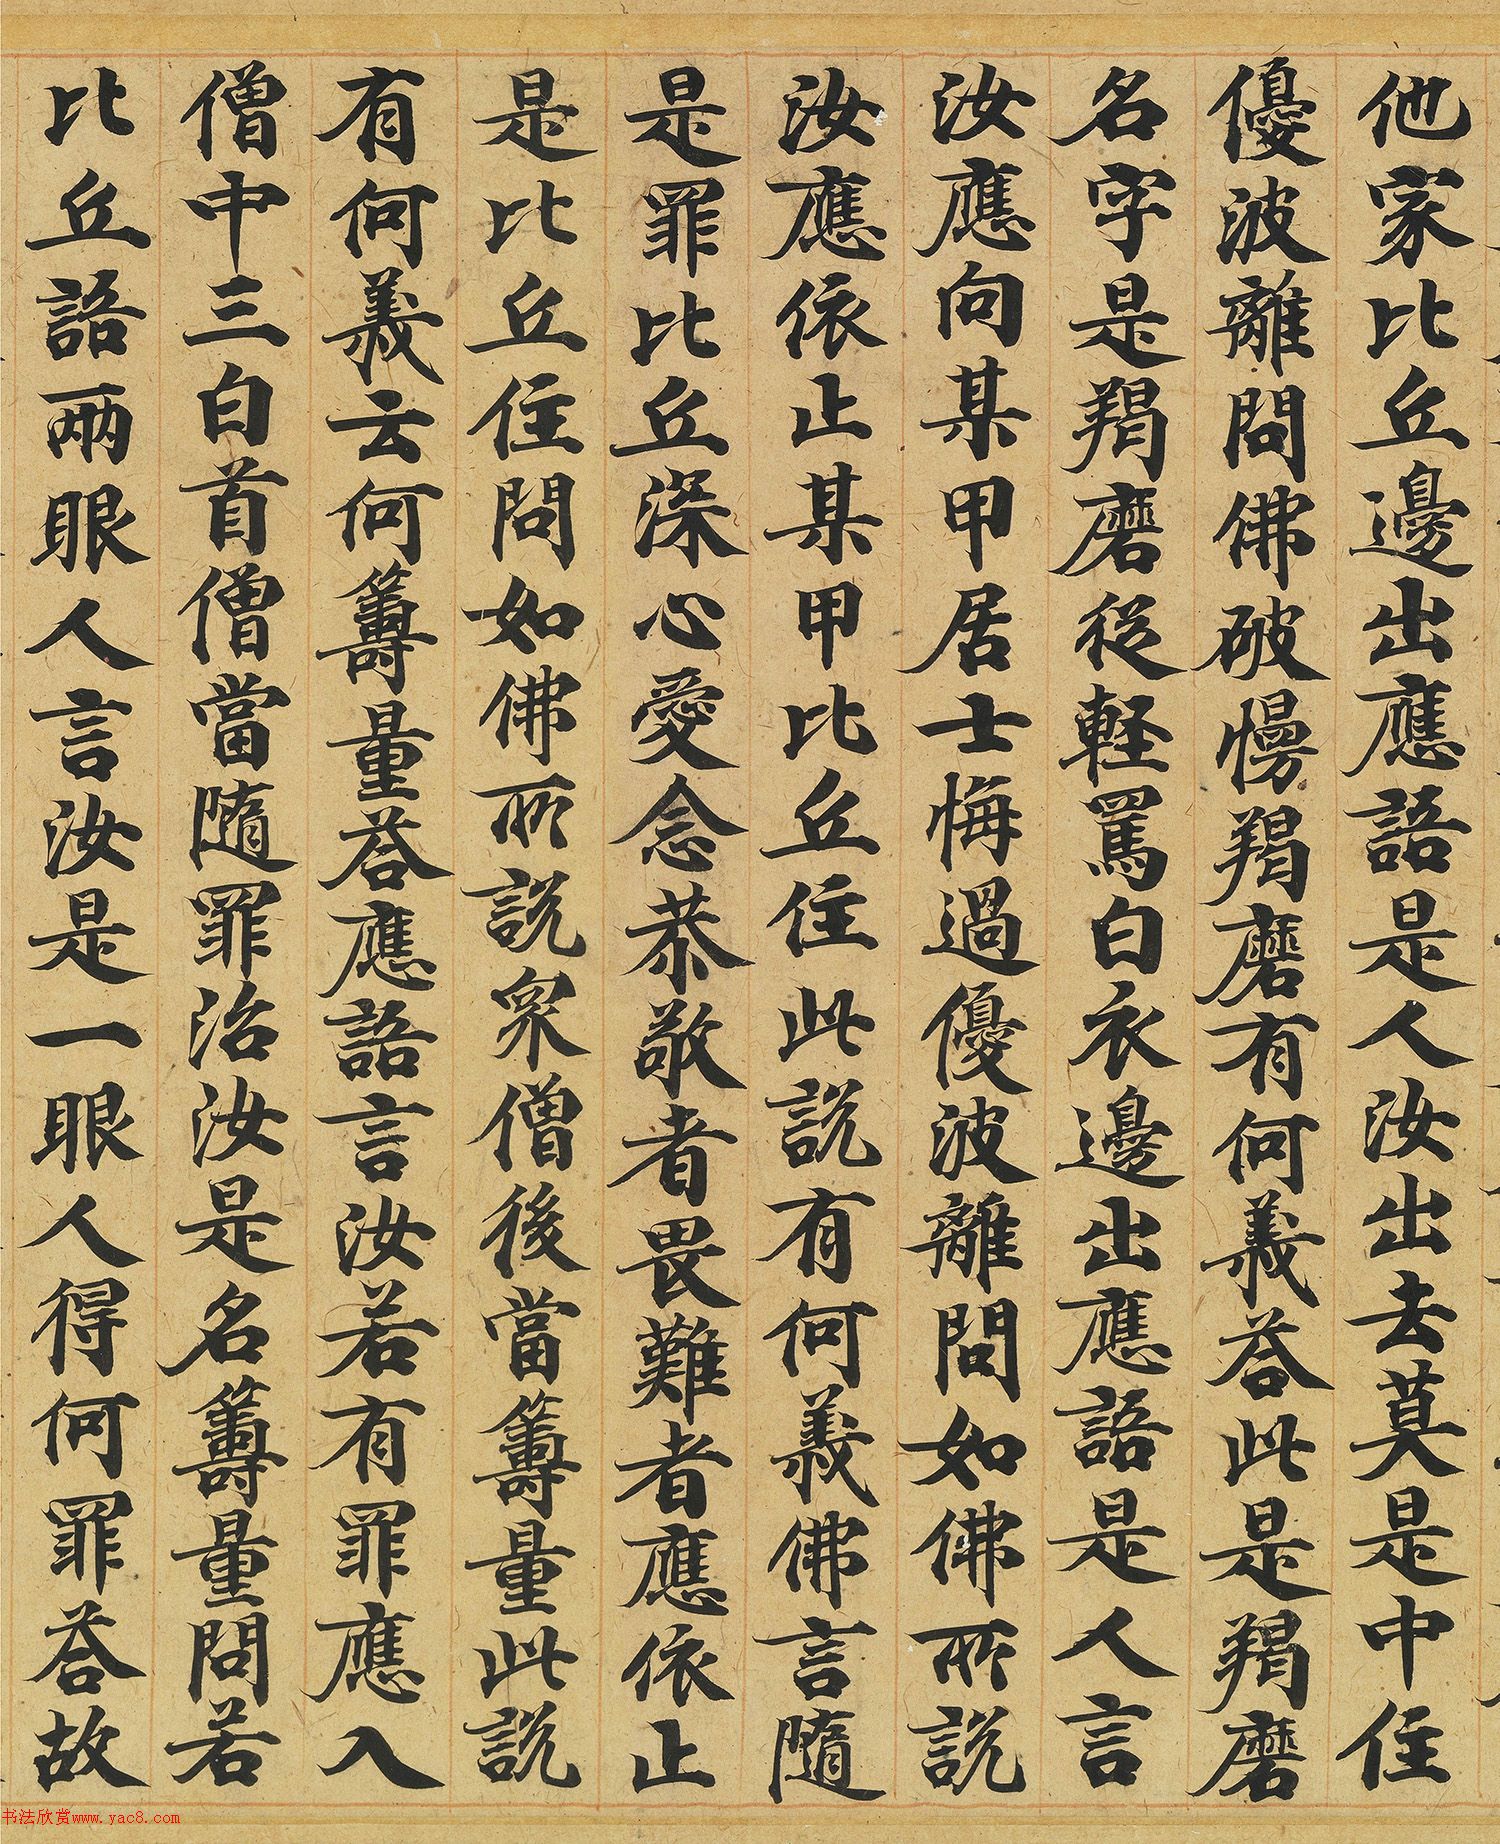 他家比丘邊出應語是人汝出去莫是中住
優波離問佛破慢羯磨有何義荅此是羯磨
名字是羯磨從輕罵白衣邊出應語是人言
汝應向某甲居士悔過優波離問如佛所說
汝應依止某甲比丘住此說有何義佛言隨
是罪比丘深心愛念恭敬者畏難者應依止
是比丘住問如佛所說眾僧後當籌量此說
有何義云何籌量荅應語言汝若有罪應入
僧中三白首僧當隨罪治汝是名籌量問若
比丘語兩眼人言汝是一眼人得何罪荅故
书法欣赏www.yac8.com